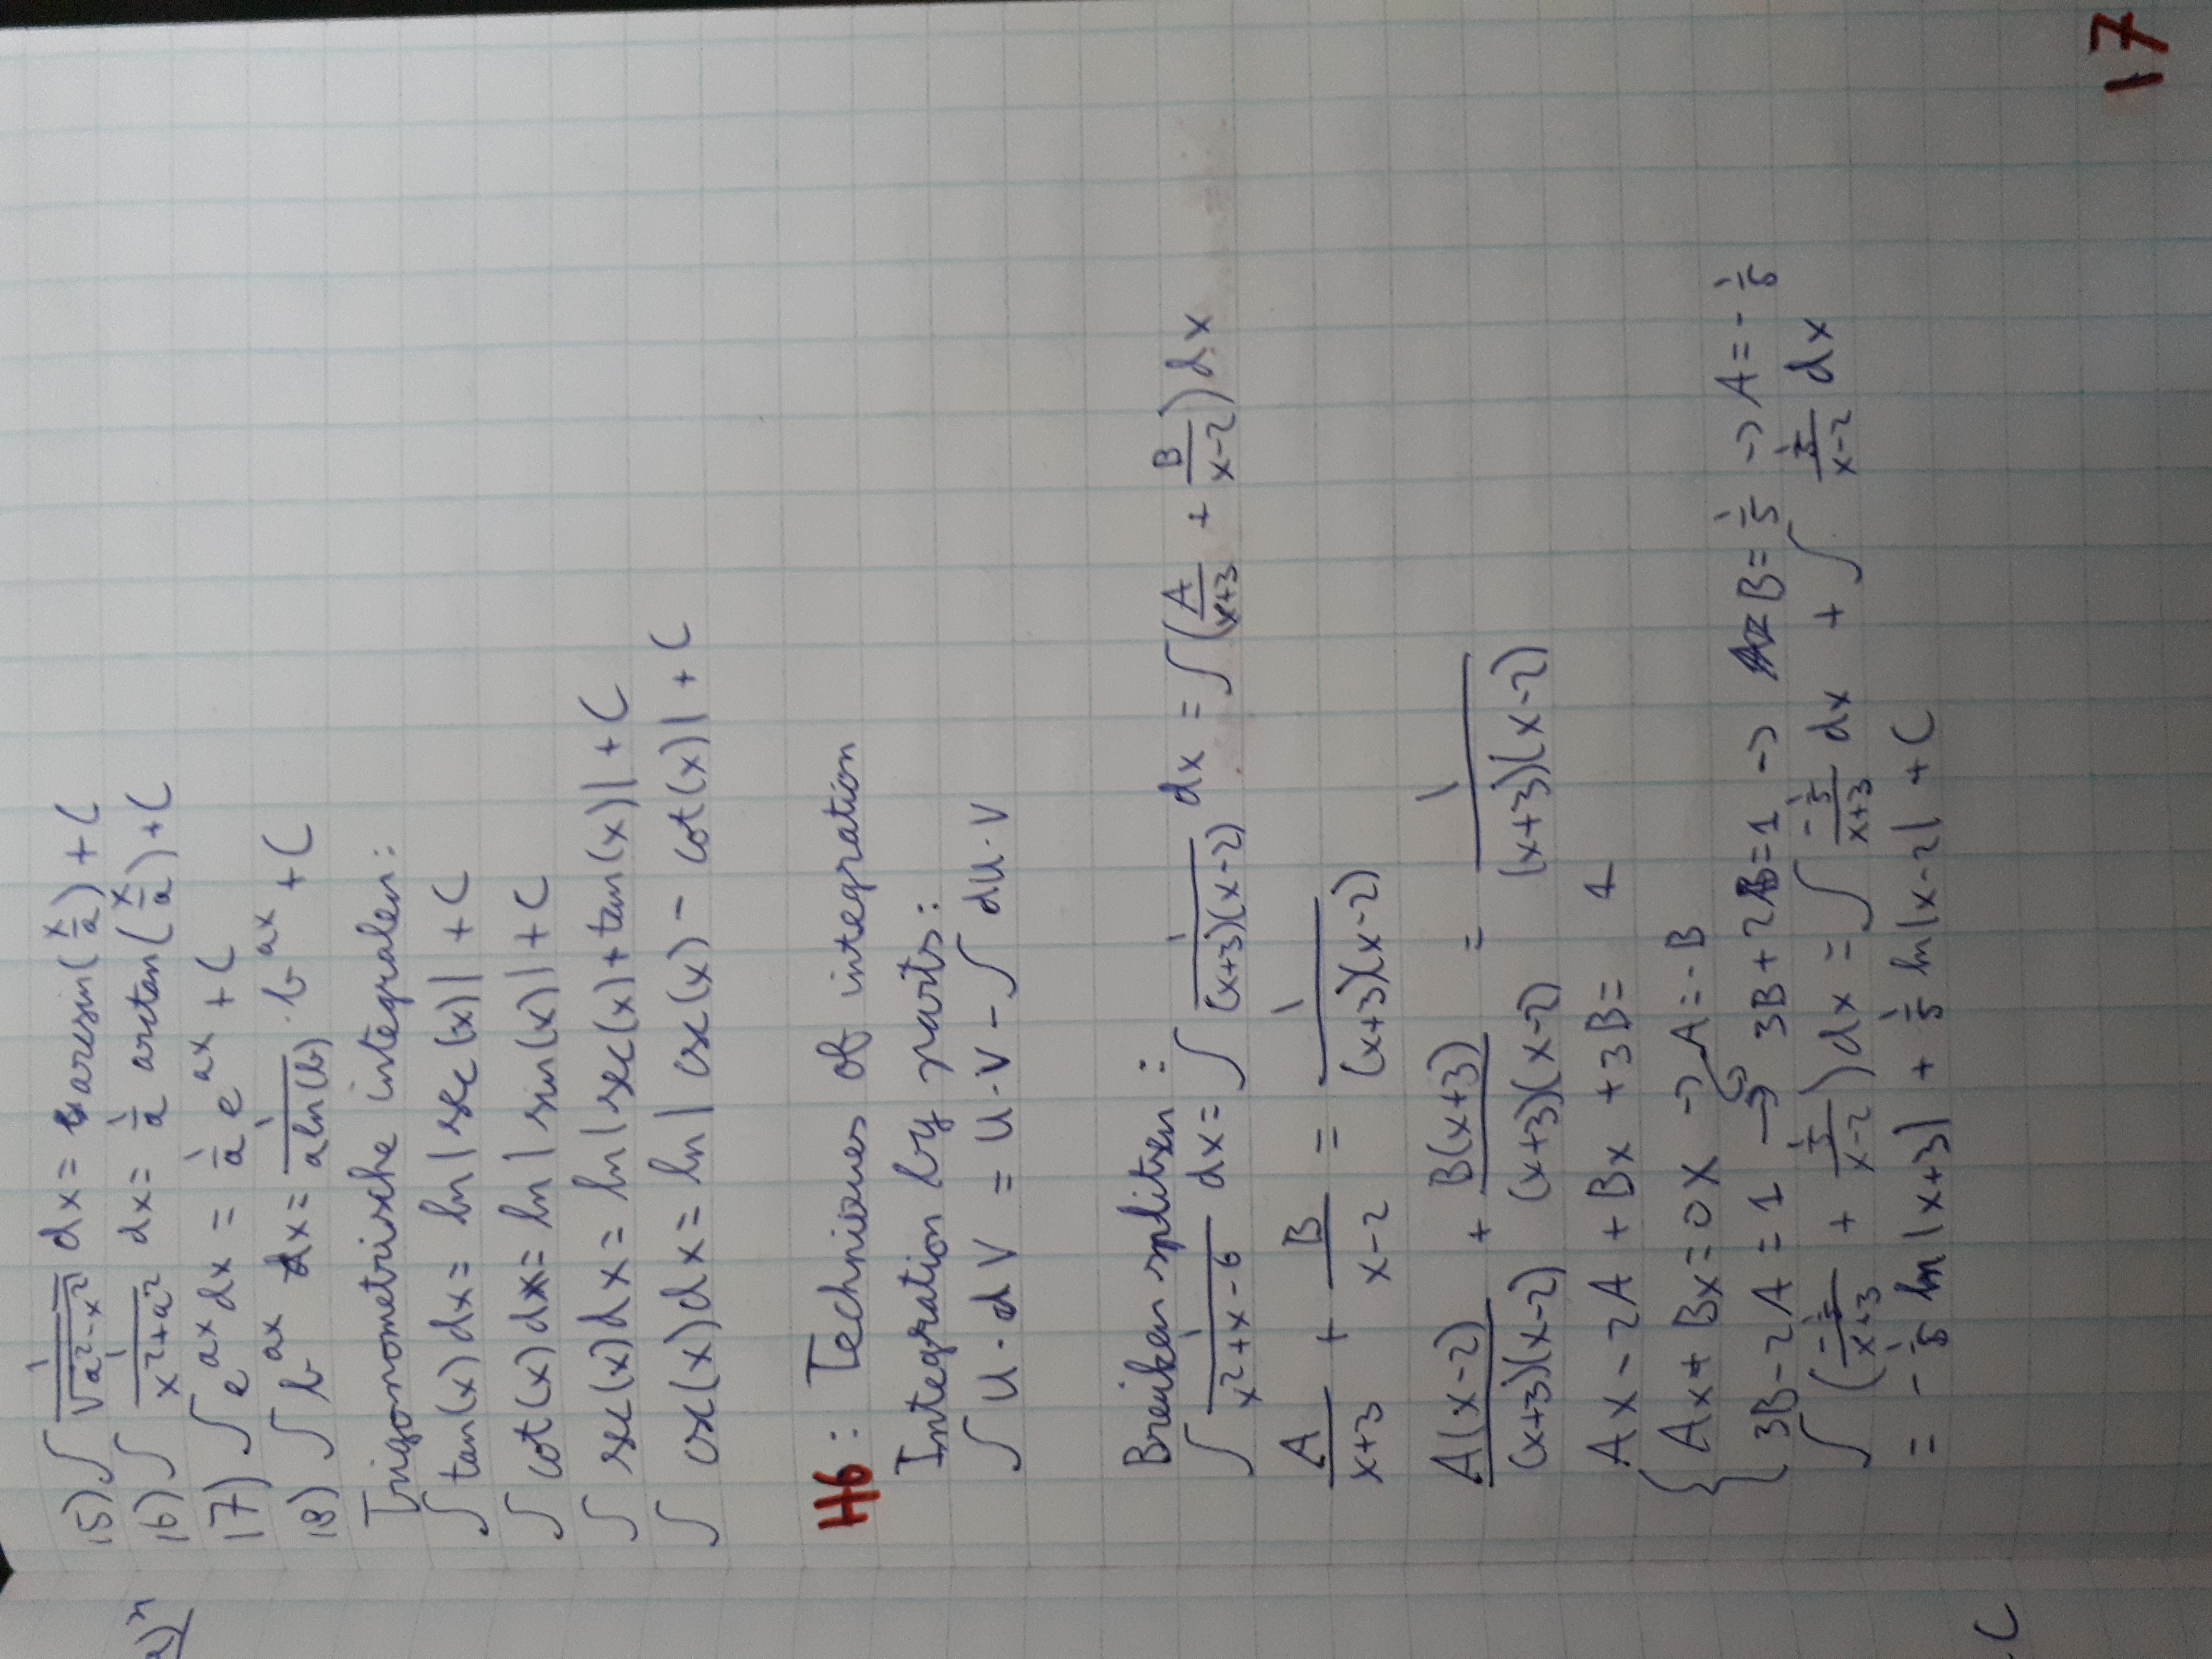 15) ∫ 1/√(a²-x²) dx = arcsin(x/a) + C
16) ∫ 1/(x²+a²) dx = 1/a arctan(x/a) + C
17) ∫ e^(ax) dx = 1/a e^(ax) + C
18) ∫ b^(ax) dx = 1/(a ln(b)) · b^(ax) + C
Trigonometrische integralen:
∫ tan(x) dx = ln|sec(x)| + C
∫ cot(x) dx = ln|sin(x)| + C
∫ sec(x) dx = ln|sec(x) + tan(x)| + C
∫ csc(x) dx = ln|csc(x) - cot(x)| + C
H6: Techniques of integration
Integration by parts:
∫ u · dV = u · V - ∫ du · V
Breuken splitsen:
∫ 1/(x²+x-6) dx = ∫ 1/((x+3)(x-2)) dx = ∫ (A/(x+3) + B/(x-2)) dx
A/(x+3) + B/(x-2) = 1/((x+3)(x-2))
A(x-2)/((x+3)(x-2)) + B(x+3)/((x+3)(x-2)) = 1/((x+3)(x-2))
Ax - 2A + Bx + 3B = 1
{ Ax + Bx = 0x → A = -B
3B - 2A = 1 → 3B + 2B = 1 → B = 1/5 → A = -1/5
∫ (-1/5/(x+3) + 1/5/(x-2)) dx = ∫ -1/5/(x+3) dx + ∫ 1/5/(x-2) dx
= -1/5 ln|x+3| + 1/5 ln|x-2| + C
17
C